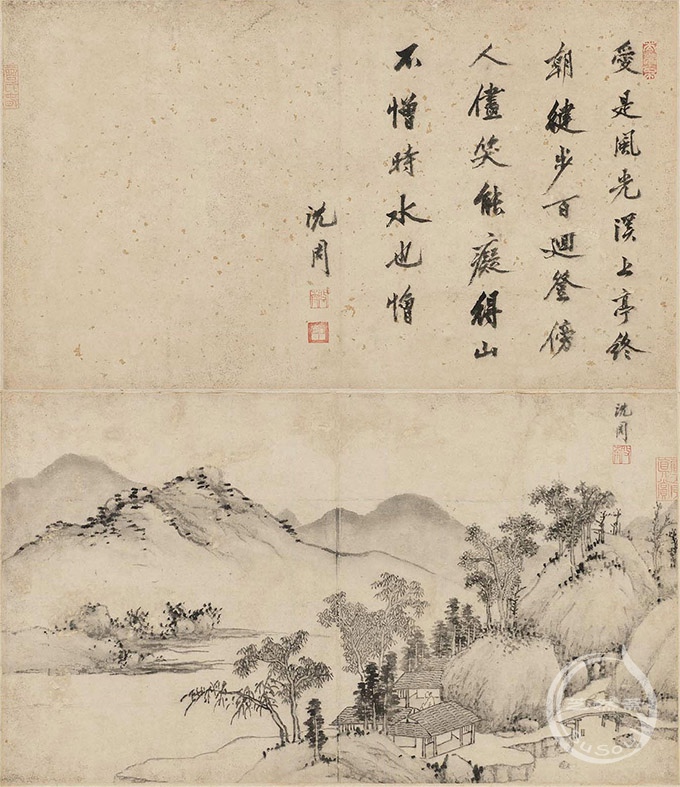 愛是風光溪上亭終
朝徤步百迴登傍
人儘笑能癡得山
不憎時水也憎
沈周
沈周